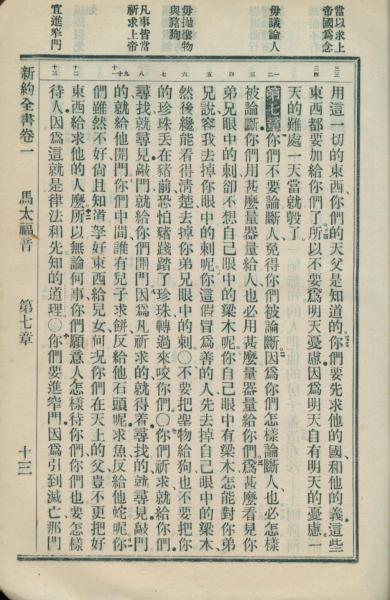 當以求上
帝國為念
毋議論人
毋拋聖物
與豬狗
凡事皆當
祈求上帝
宜進窄門
三三
三四
一二
三
四
五
六
七
八
九十十一
十二
十三
用這一切的東西你們的天父是知道的你們要先求他的國和他的義這些
東西都要加給你們了所以不要爲明天憂慮因爲明天自有明天的憂慮一
天的難處一天當就彀了
第七章你們不要論斷人免得你們被論斷因爲你們怎樣論斷人也必怎樣
被論斷你們用甚麼量器量給人也必用甚麼量器量給你們爲甚麼看見你
弟兄眼中的刺卻不想自己眼中的梁木呢你自己眼中有梁木怎能對你弟
兄說容我去掉你眼中的刺呢你這假冒爲善的人先去掉自己眼中的梁木
然後纔能看得淸楚去掉你弟兄眼中的刺〇不要把聖物給狗也不要把你
的珍珠丟在豬前恐怕豬踐踏了珍珠轉過來咬你們〇你們祈求就給你們
尋找就尋見敲門就給你們開門因爲凡祈求的就得着尋找的就尋見敲門
的就給他開門你們中間誰有兒子求餅反給他石頭呢求魚反給他蛇呢你
們雖然不好尙且知道拿好東西給兒女何况你們在天上的父豈不更把好
東西給求他的人麼所以無論何事你們願意人怎樣待你們你們也要怎樣
待人因爲這就是律法和先知的道理〇你們要進窄門因爲引到滅亡那門
新約全書卷一 馬太福音 第七章 十三